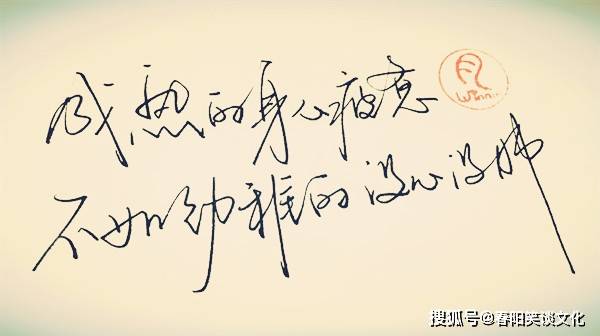 成熟的身心疲惫
不如幼稚的没心没肺
Winnii
搜狐号@春阳笑谈文化